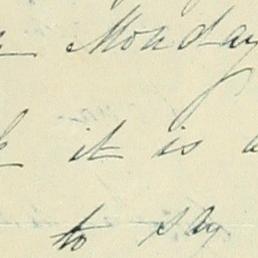 Monday
it is
to say